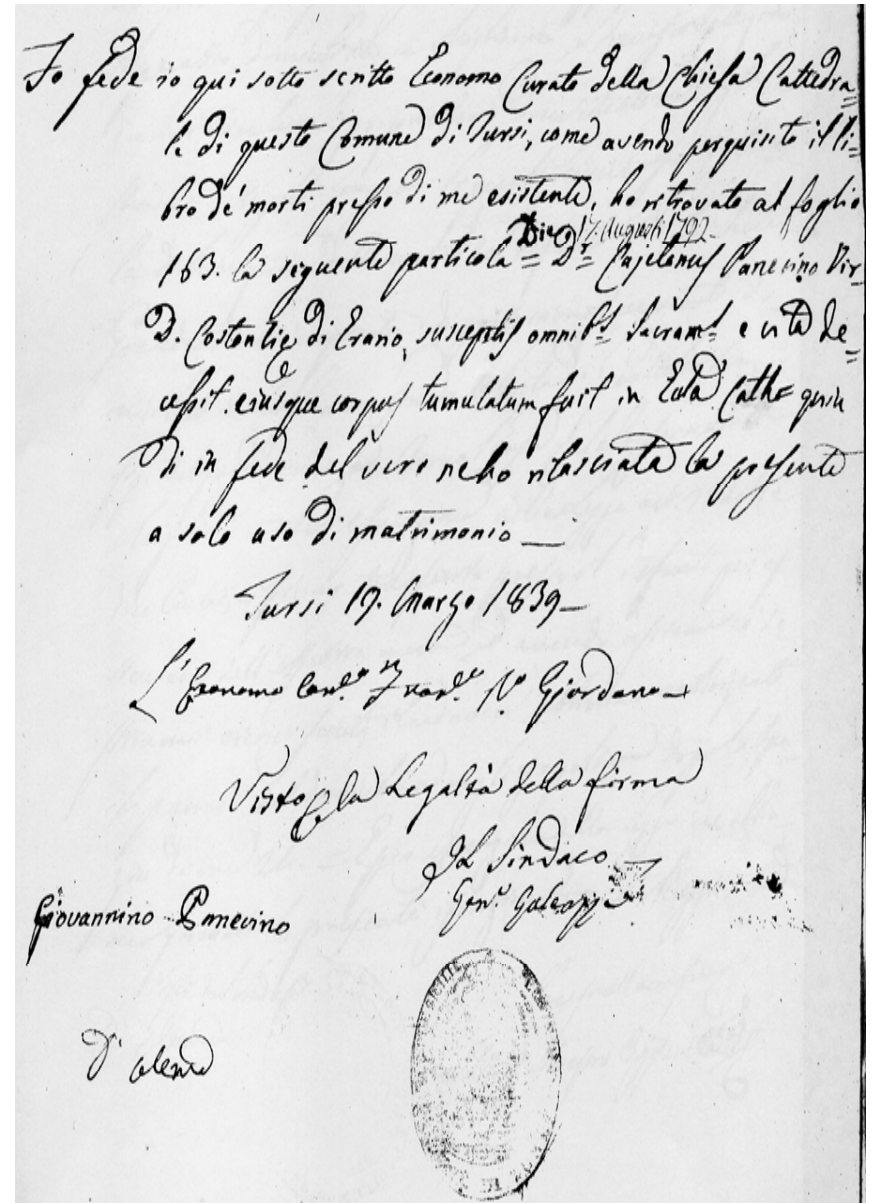 Fo fede io qui sotto scritto Economo Curato della Chiesa Cattedra=
le di questo Comune di Tursi, come avendo perquisito il li=
bro de' morti presso di me esistente, ho ritrovato al foglio
Die 17. Augusti 1792
163. la seguente particola = Dr Cajetanus Panevino Vir
D. Costentie di Erario, susceptis omnibs Sacramts e vita de=
cessit. ejusque corpus tumulatum fuit in Eccla Cathe quin
di in fede del vero ne ho rilasciata la presente
a solo uso di matrimonio —
Tursi 17. Marzo 1839 —
L'Economo Giordano
Visto p la Legaltà della firma
Il Sindaco
Giovannino Panevino